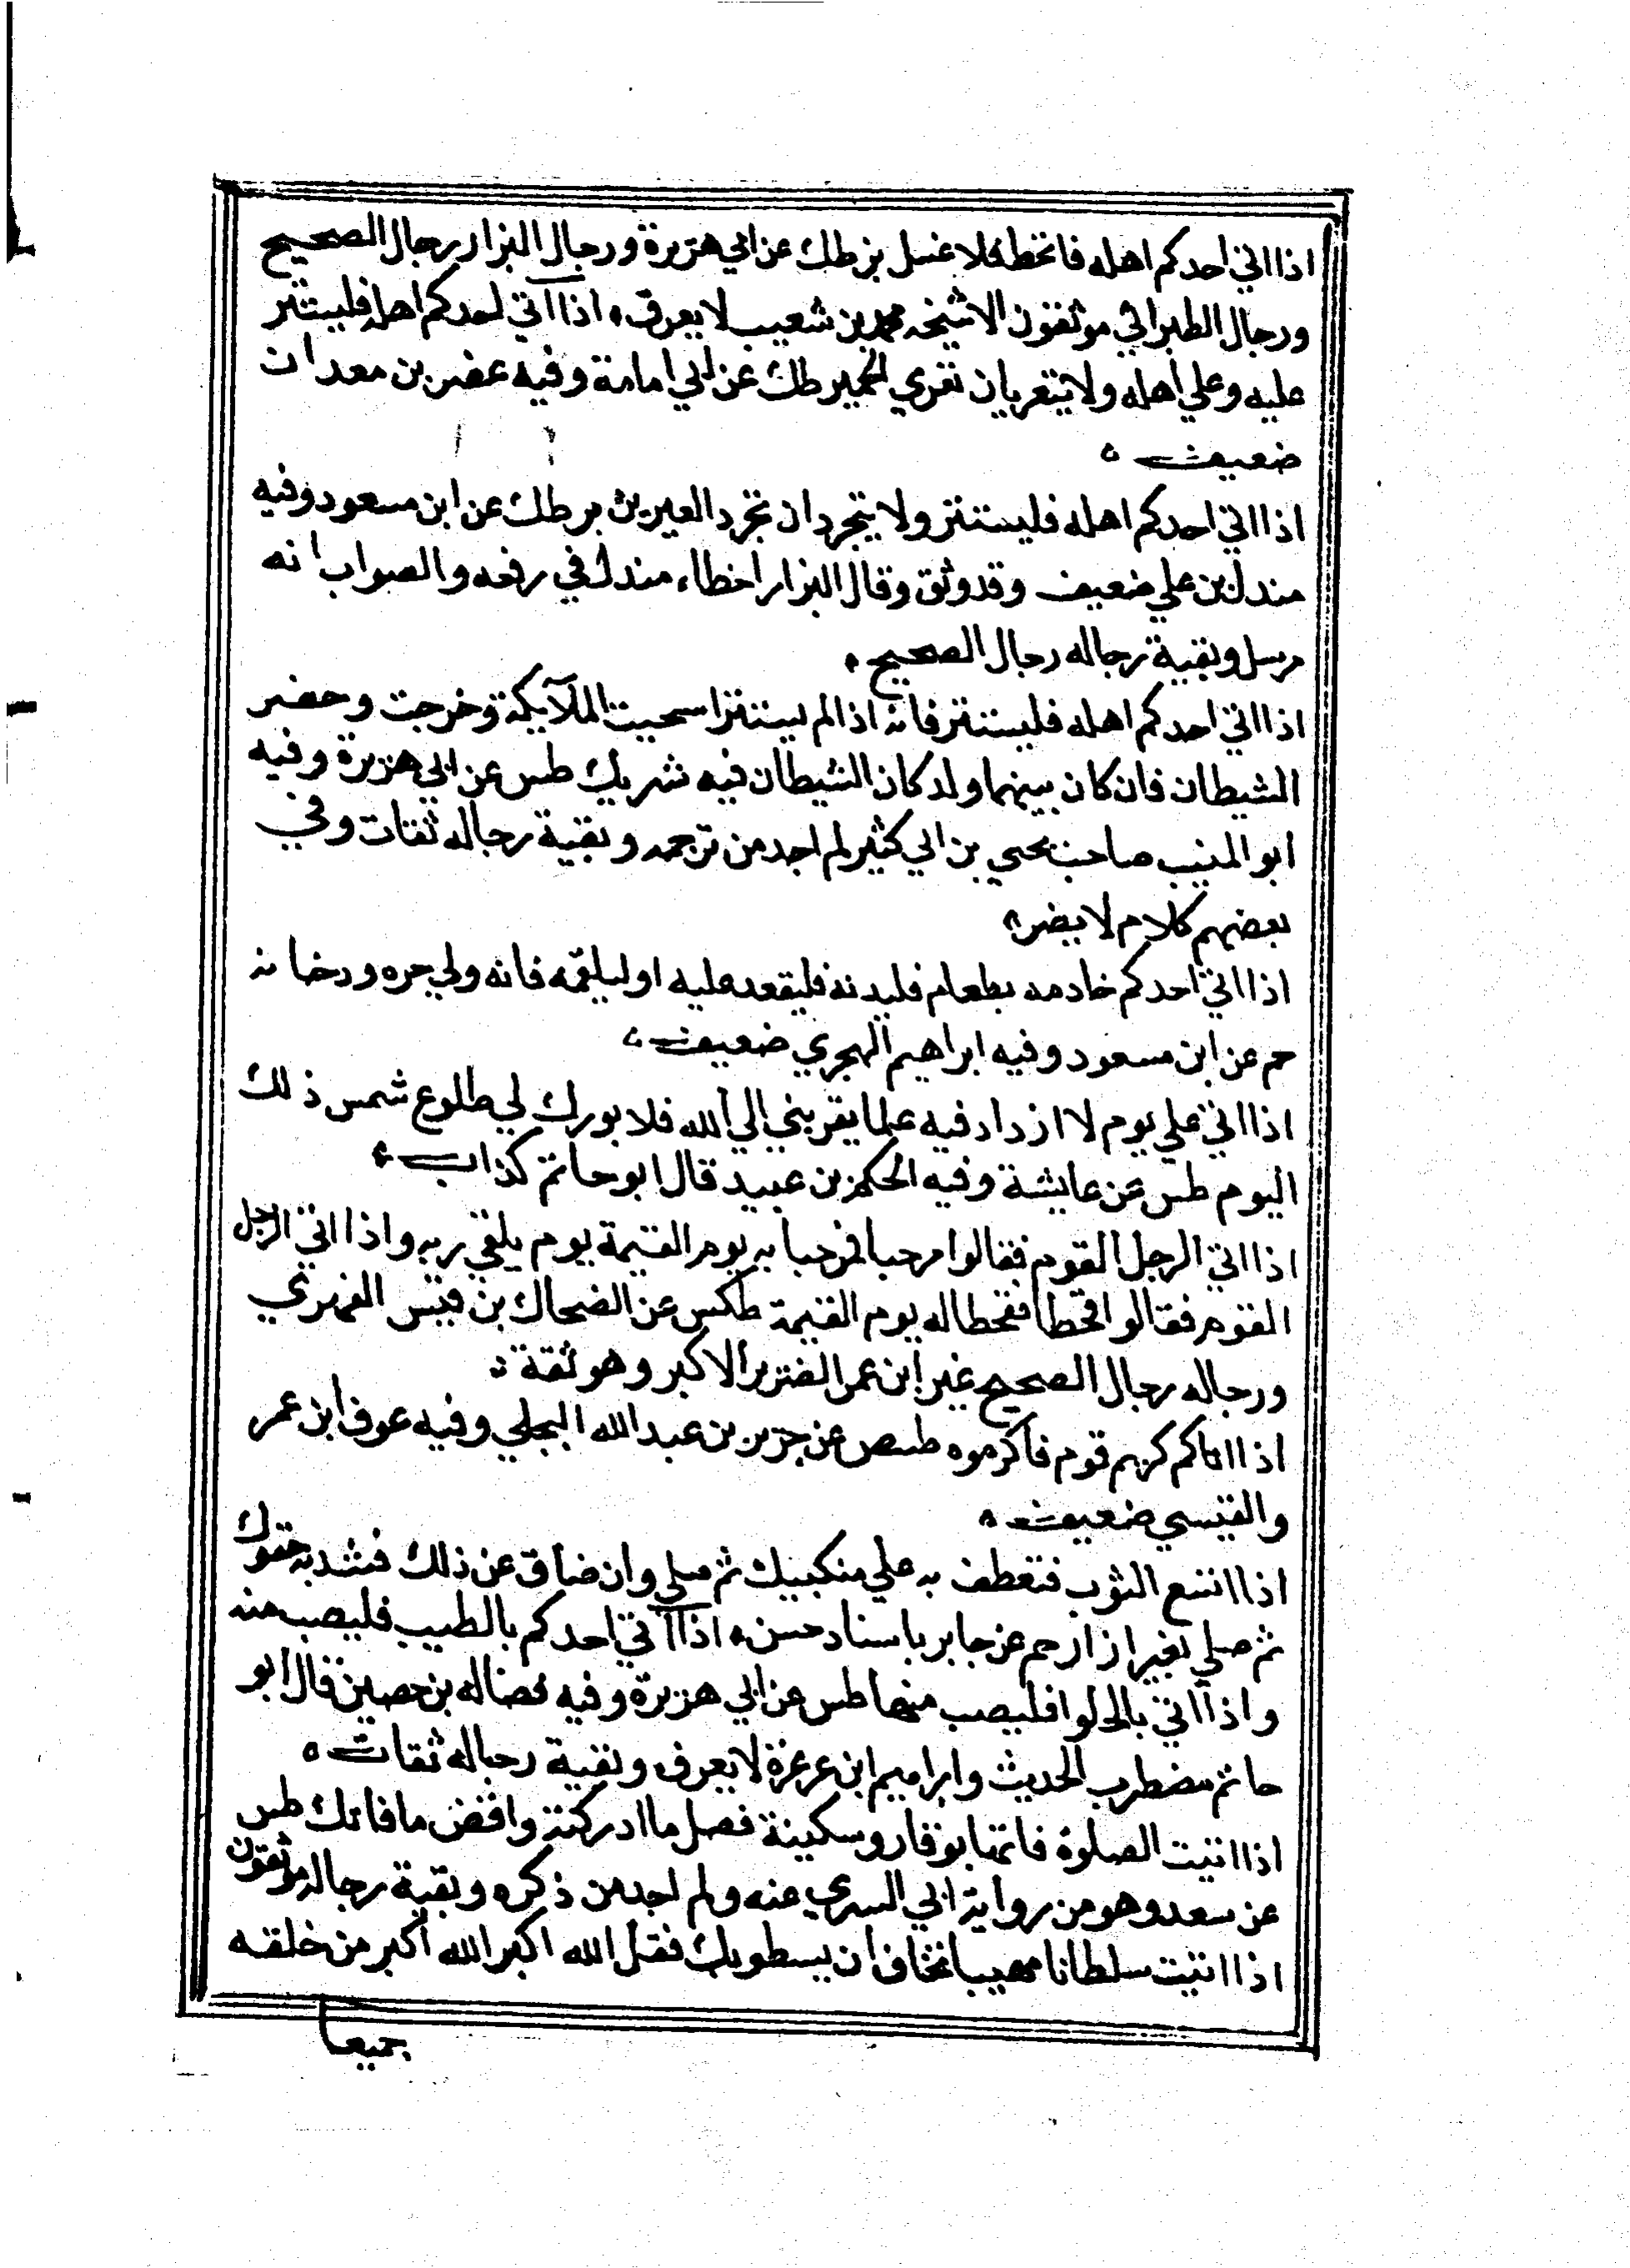 اذا اتي احدكم اهله فاقحط فلا غسل بز طك عن ابي هريرة ورجال البزار رجال الصحيح
ورجال الطبراني موثقون الا شيخه محمد بن شعيب لا يعرف ه اذا آتي احدكم اهله فليستتر
عليه وعلي اهله ولا يتعريان تعري الحمير طك عن ابي امامة وفيه عفير بن معدان
ضعيف ه
اذا اتي احدكم اهله فليستتر ولا يتجردان تجرد العيرين بر طك عن ابن مسعود وفيه
مندل بن علي ضعيف وقد وثق وقال البزار اخطاء مندل في رفعه والصواب انه
مرسل وبقية رجاله رجال الصحيح ه
اذا اتي احدكم اهله فليستتر فانه اذا لم يستتر استحيت الملآيكة وخرجت وحضر
الشيطان فان كان بينهما ولد كان الشيطان فيه شريك طس عن ابي هريرة وفيه
ابو المنيب صاحب يحيي بن ابي كثير لم اجد من ترجمه وبقية رجاله ثقات وفي
بعضهم كلام لا يضر ه
اذا اتي احدكم خادمه بطعام فليدنه فليقعد عليه او ليلقمه فانه ولي حره ودخانه
حم عن ابن مسعود وفيه ابراهيم الهجري ضعيف ه
اذا اتي علي يوم لا ازداد فيه علما يقربني الي الله فلا بورك لي طلوع شمس ذلك
اليوم طس عن عايشة وفيه الحكم بن عبيد قال ابو حاتم كذاب ه
اذا اتي الرجل القوم فقالوا مرحبا فمرحبا به يوم القيمة يوم يلقي ربه واذا اتي الرجل
القوم فقالوا قحطا فقحطا له يوم القيمة طكس عن الضحاك بن قيس الفهري
ورجاله رجال الصحيح غير ابن عمر الضرير الاكبر وهو ثقة ه
اذا اتاكم كريم قوم فاكرموه طسص عن جرير بن عبد الله البجلي وفيه عوف ابن عمر
والقيسي ضعيف ه
اذا اتسع الثوب فتعطف به علي منكبيك ثم صلي وان ضاق عن ذلك فشد به حقوك
ثم صلي بغير ازار حم عن جابر باسناد حسن ه اذا آتي احدكم بالطيب فليصب منه
واذا آتي بالحلوا فليصب منها طس عن ابي هريرة وفيه فضاله بن حصين قال ابو
حاتم مضطرب الحديث وابراهيم ابن عرعرة لا يعرف وبقية رجاله ثقات ه
اذا اتيت الصلوة فاتها بوقار وسكينة فصل ما ادركته واقض ما فاتك طس
عن سعد وهو من رواية ابي السري عنه ولم اجد من ذكره وبقية رجاله موثقون
اذا اتيت سلطانا مهيبا تخاف ان يسطو بك فقل الله اكبر الله اكبر من خلقه
جميعا